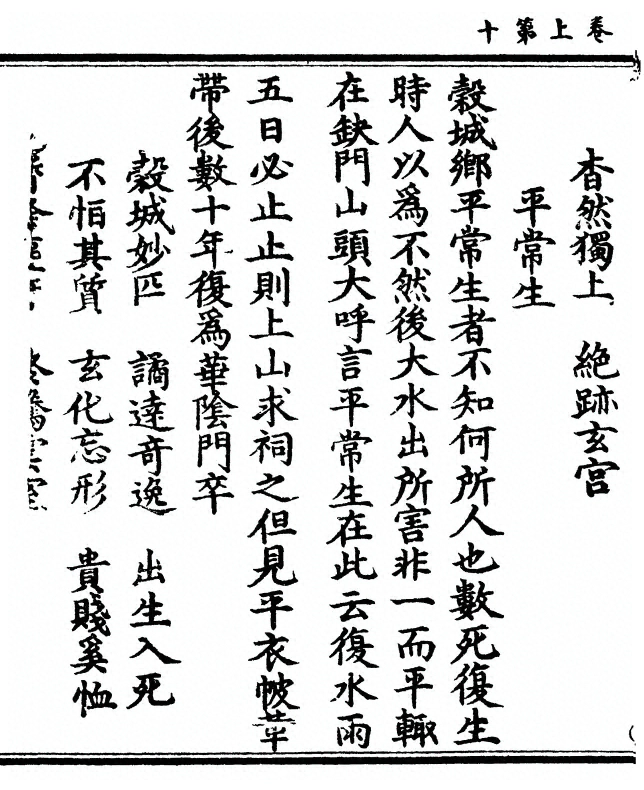 卷上第十
杳然獨上　絕跡玄宮
平常生
穀城鄉平常生者不知何所人也數死復生
時人以爲不然後大水出所害非一而平輙
在缺門山頭大呼言平常生在此云復水雨
五日必止止則上山求祠之但見平衣帔革
帶後數十年復爲華陰門卒
穀城妙匹　譎達奇逸　出生入死
不怕其質　玄化忘形　貴賤奚恤